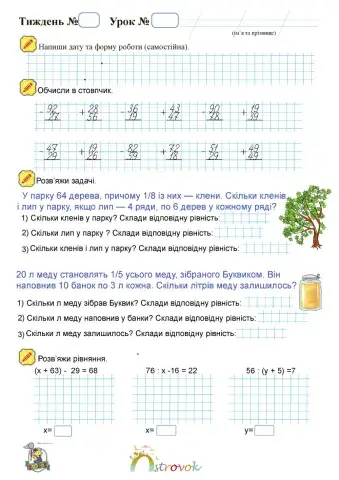 Тиждень № Урок №
(ім'я та прізвище)
Напиши дату та форму роботи (самостійна).
Обчисли в стовпчик.
- 92 + 28 - 36 + 43 - 90 + 19
27 56 19 47 38 39
- 47 + 19 - 82 + 72 - 51 + 49
29 26 39 18 29 49
Розв'яжи задачі.
У парку 64 дерева, причому 1/8 із них — клени. Скільки кленів
і лип у парку, якщо лип — 4 ряди, по 6 дерев у кожному ряді?
1) Скільки кленів у парку? Склади відповідну рівність:
2) Скільки лип у парку ? Склади відповідну рівність:
3) Скільки кленів і лип у парку? Склади відповідну рівність:
20 л меду становлять 1/5 усього меду, зібраного Буквиком. Він
наповнив 10 банок по 3 л кожна. Скільки літрів меду залишилось?
1) Скільки л меду зібрав Буквик? Склади відповідну рівність:
2) Скільки л меду наповнив у банки? Склади відповідну рівність:
3) Скільки л меду залишилось? Склади відповідну рівність:
Розв'яжи рівняння.
(х + 63) - 29 = 68 76 : х -16 = 22 56 : (у + 5) =7
х= х= у=
strovok